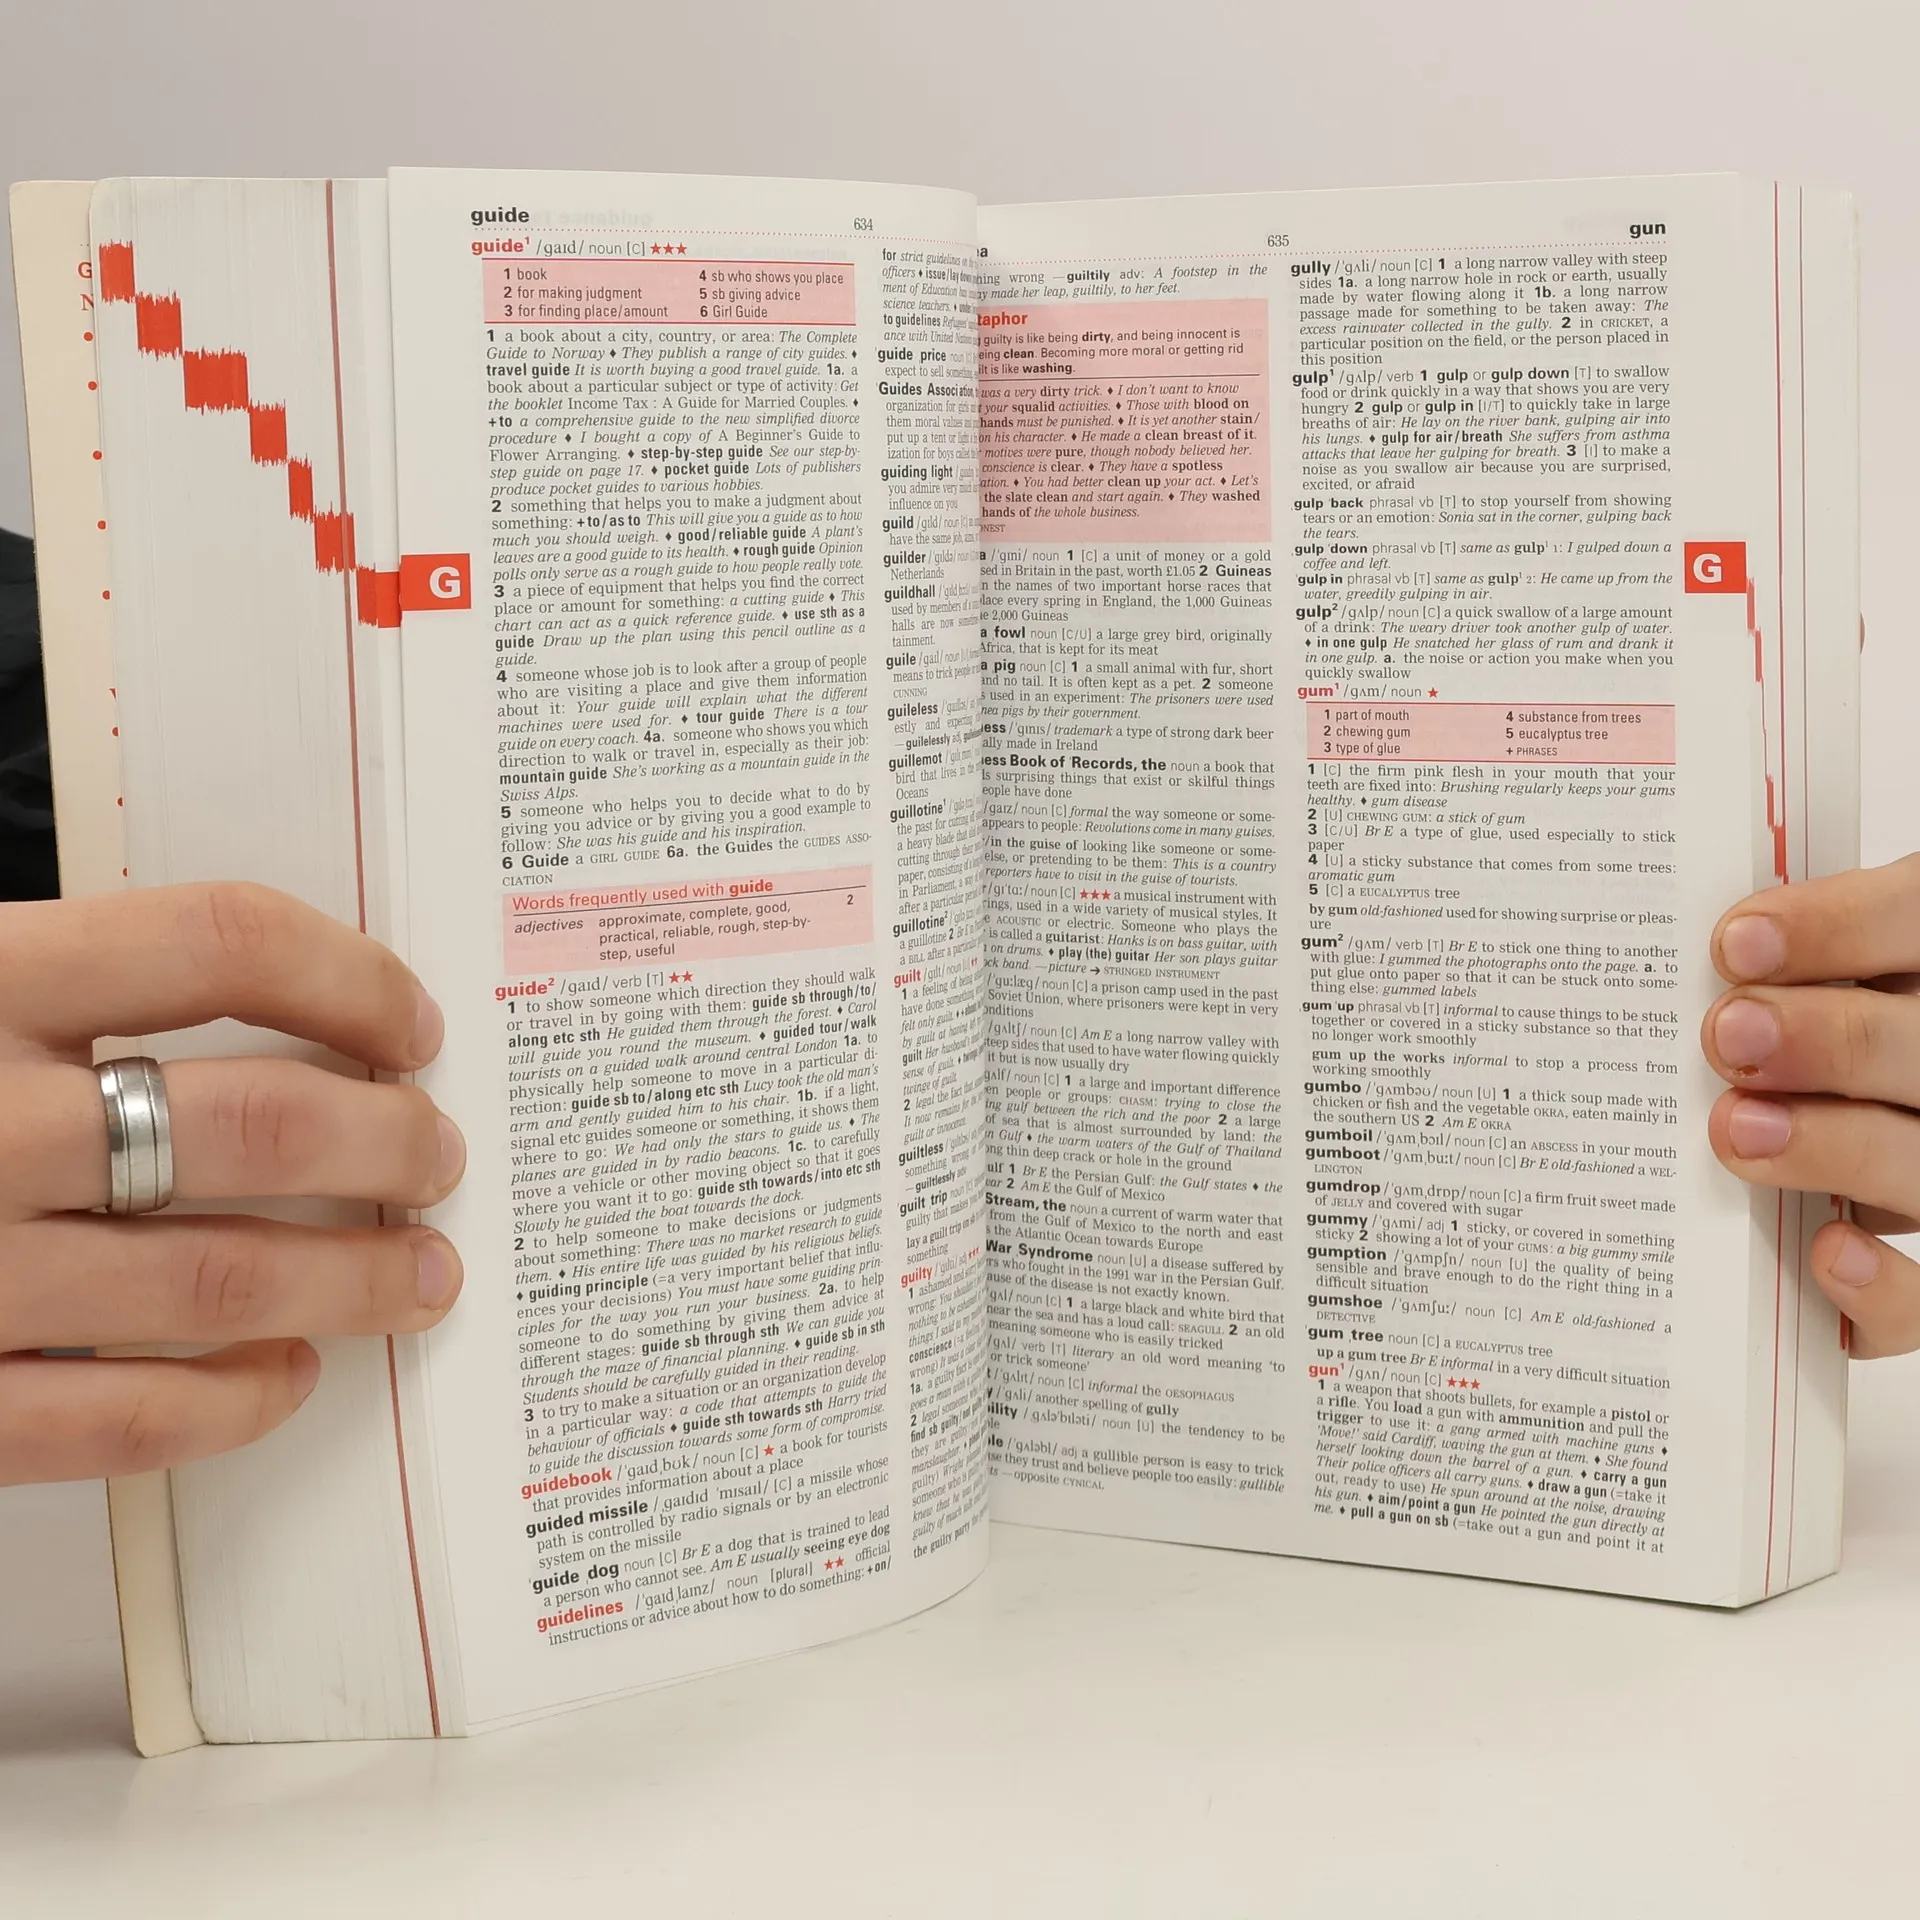 guide
634
guide¹ /gaɪd/ noun [C] ★★★
1 book
2 for making judgment
3 for finding place/amount
4 sb who shows you place
5 sb giving advice
6 Girl Guide
1 a book about a city, country, or area: The Complete
Guide to Norway ♦ They publish a range of city guides. ♦
travel guide It is worth buying a good travel guide. 1a. a
book about a particular subject or type of activity: Get
the booklet Income Tax : A Guide for Married Couples. ♦
+to a comprehensive guide to the new simplified divorce
procedure ♦ I bought a copy of A Beginner's Guide to
Flower Arranging. ♦ step-by-step guide See our step-by-
step guide on page 17. ♦ pocket guide Lots of publishers
produce pocket guides to various hobbies.
2 something that helps you to make a judgment about
something: +to/as to This will give you a guide as to how
much you should weigh. ♦ good/reliable guide A plant's
leaves are a good guide to its health. ♦ rough guide Opinion
polls only serve as a rough guide to how people really vote.
3 a piece of equipment that helps you find the correct
place or amount for something: a cutting guide ♦ This
chart can act as a quick reference guide. ♦ use sth as a
guide Draw up the plan using this pencil outline as a
guide.
4 someone whose job is to look after a group of people
who are visiting a place and give them information
about it: Your guide will explain what the different
machines were used for. ♦ tour guide There is a tour
guide on every coach. 4a. someone who shows you which
direction to walk or travel in, especially as their job:
mountain guide She's working as a mountain guide in the
Swiss Alps.
5 someone who helps you to decide what to do by
giving you advice or by giving you a good example to
follow: She was his guide and his inspiration.
6 Guide a GIRL GUIDE 6a. the Guides the GUIDES ASSO-
CIATION
Words frequently used with guide
adjectives approximate, complete, good, 2
practical, reliable, rough, step-by-
step, useful
guide² /gaɪd/ verb [T] ★★
1 to show someone which direction they should walk
or travel in by going with them: guide sb through/to/
along etc sth He guided them through the forest. ♦ Carol
will guide you round the museum. ♦ guided tour/walk
tourists on a guided walk around central London 1a. to
physically help someone to move in a particular di-
rection: guide sb to/along etc sth Lucy took the old man's
arm and gently guided him to his chair. 1b. if a light,
signal etc guides someone or something, it shows them
where to go: We had only the stars to guide us. ♦ The
planes are guided in by radio beacons. 1c. to carefully
move a vehicle or other moving object so that it goes
where you want it to go: guide sth towards/into etc sth
Slowly he guided the boat towards the dock.
2 to help someone to make decisions or judgments
about something: There was no market research to guide
them. ♦ His entire life was guided by his religious beliefs.
♦ guiding principle (=a very important belief that influ-
ences your decisions) You must have some guiding prin-
ciples for the way you run your business. 2a. to help
someone to do something by giving them advice at
different stages: guide sb through sth We can guide you
through the maze of financial planning. ♦ guide sb in sth
Students should be carefully guided in their reading.
3 to try to make a situation or an organization develop
in a particular way: a code that attempts to guide the
behaviour of officials ♦ guide sth towards sth Harry tried
to guide the discussion towards some form of compromise.
guidebook /ˈgaɪdˌbʊk/ noun [C] ★ a book for tourists
that provides information about a place
guided missile /ˌgaɪdɪd ˈmɪsaɪl/ [C] a missile whose
path is controlled by radio signals or by an electronic
system on the missile
ˈguide ˌdog noun [C] Br E a dog that is trained to lead
a person who cannot see. Am E usually seeing eye dog
guidelines /ˈgaɪdˌlaɪnz/ noun [plural] ★★ official
instructions or advice about how to do something: +on/
for strict guidelines on
officers ♦ issue/lay down
ment of Education
science teachers. ♦
to guidelines
ance with United
ˈguide ˌprice noun
expect to sell something
Guides Association,
organization for girls
them moral values
put up a tent or
ization for boys called
guiding light
you admire very much
influence on you
guild /gɪld/ noun [C]
have the same job,
guilder /ˈgɪldə/ noun
Netherlands
guildhall
used by members of a
halls are now
tainment.
guile /gaɪl/ noun
means to trick people
CUNNING
guileless
estly and
—guilelessly adj,
guillemot
bird that lives in the
Oceans
guillotine¹
the past for cutting
a heavy blade that
cutting through their
paper, consisting of
in Parliament, a
after a particular
guillotine²
a guillotine 2 Br E
a BILL after a particular
guilt /gɪlt/ noun
1 a feeling of being
have done something
felt only guilt.
by guilt at having
guilt Her husband's
sense of guilt.
twinge of guilt.
2 legal the fact that
It now remains for
guilt or innocence.
guiltless
something wrong
—guiltlessly adv
ˈguilt ˌtrip noun
guilty that makes
lay a guilt trip on
something
guilty /ˈgɪlti/ adj ★★★
1 ashamed and
wrong: You
nothing to be
things I said to my
conscience
wrong)
1a. a guilty
goes a man with a
2 legal someone
find sb guilty/not guilty
they are guilty
manslaughter.
guilty)
someone who is
knew that he was
guilty of much
the guilty party the
635
gun
a
hing wrong —guiltily adv: A footstep in the
ay made her leap, guiltily, to her feet.
taphor
guilty is like being dirty, and being innocent is
eing clean. Becoming more moral or getting rid
ilt is like washing.
was a very dirty trick. ♦ I don't want to know
your squalid activities. ♦ Those with blood on
hands must be punished. ♦ It is yet another stain/
on his character. ♦ He made a clean breast of it.
motives were pure, though nobody believed her.
conscience is clear. ♦ They have a spotless
ation. ♦ You had better clean up your act. ♦ Let's
the slate clean and start again. ♦ They washed
hands of the whole business.
NEST
a /ˈgɪni/ noun 1 [C] a unit of money or a gold
sed in Britain in the past, worth £1.05 2 Guineas
n the names of two important horse races that
lace every spring in England, the 1,000 Guineas
e 2,000 Guineas
a ˌfowl noun [C/U] a large grey bird, originally
Africa, that is kept for its meat
a ˌpig noun [C] 1 a small animal with fur, short
and no tail. It is often kept as a pet. 2 someone
s used in an experiment: The prisoners were used
nea pigs by their government.
ess /ˈgɪnɪs/ trademark a type of strong dark beer
ally made in Ireland
ess Book of ˈRecords, the noun a book that
ls surprising things that exist or skilful things
eople have done
/gaɪz/ noun [C] formal the way someone or some-
appears to people: Revolutions come in many guises.
/in the guise of looking like someone or some-
else, or pretending to be them: This is a country
reporters have to visit in the guise of tourists.
r /gɪˈtɑː/ noun [C] ★★★ a musical instrument with
rings, used in a wide variety of musical styles. It
e ACOUSTIC or electric. Someone who plays the
is called a guitarist: Hanks is on bass guitar, with
on drums. ♦ play (the) guitar Her son plays guitar
ck band. —picture → STRINGED INSTRUMENT
/ˈguːlæg/ noun [C] a prison camp used in the past
Soviet Union, where prisoners were kept in very
onditions
/gʌltʃ/ noun [C] Am E a long narrow valley with
steep sides that used to have water flowing quickly
it but is now usually dry
gʌlf/ noun [C] 1 a large and important difference
en people or groups: CHASM: trying to close the
ing gulf between the rich and the poor 2 a large
of sea that is almost surrounded by land: the
n Gulf ♦ the warm waters of the Gulf of Thailand
ong thin deep crack or hole in the ground
ulf 1 Br E the Persian Gulf: the Gulf states ♦ the
war 2 Am E the Gulf of Mexico
Stream, the noun a current of warm water that
from the Gulf of Mexico to the north and east
s the Atlantic Ocean towards Europe
War ˌSyndrome noun [U] a disease suffered by
rs who fought in the 1991 war in the Persian Gulf.
ause of the disease is not exactly known.
gʌl/ noun [C] 1 a large black and white bird that
near the sea and has a loud call: SEAGULL 2 an old
meaning someone who is easily tricked
/gʌl/ verb [T] literary an old word meaning 'to
or trick someone'
t /ˈgʌlɪt/ noun [C] informal the OESOPHAGUS
y /ˈgʌli/ another spelling of gully
ility /ˌgʌləˈbɪləti/ noun [U] the tendency to be
le
le /ˈgʌləbl/ adj a gullible person is easy to trick
se they trust and believe people too easily: gullible
ts —opposite CYNICAL
gully /ˈgʌli/ noun [C] 1 a long narrow valley with steep
sides 1a. a long narrow hole in rock or earth, usually
made by water flowing along it 1b. a long narrow
passage made for something to be taken away: The
excess rainwater collected in the gully. 2 in CRICKET, a
particular position on the field, or the person placed in
this position
gulp¹ /gʌlp/ verb 1 gulp or gulp down [T] to swallow
food or drink quickly in a way that shows you are very
hungry 2 gulp or gulp in [I/T] to quickly take in large
breaths of air: He lay on the river bank, gulping air into
his lungs. ♦ gulp for air/breath She suffers from asthma
attacks that leave her gulping for breath. 3 [I] to make a
noise as you swallow air because you are surprised,
excited, or afraid
ˌgulp ˈback phrasal vb [T] to stop yourself from showing
tears or an emotion: Sonia sat in the corner, gulping back
the tears.
ˌgulp ˈdown phrasal vb [T] same as gulp¹ 1: I gulped down a
coffee and left.
ˈgulp in phrasal vb [T] same as gulp¹ 2: He came up from the
water, greedily gulping in air.
gulp² /gʌlp/ noun [C] a quick swallow of a large amount
of a drink: The weary driver took another gulp of water.
♦ in one gulp He snatched her glass of rum and drank it
in one gulp. a. the noise or action you make when you
quickly swallow
gum¹ /gʌm/ noun ★
1 part of mouth
2 chewing gum
3 type of glue
4 substance from trees
5 eucalyptus tree
+ PHRASES
1 [C] the firm pink flesh in your mouth that your
teeth are fixed into: Brushing regularly keeps your gums
healthy. ♦ gum disease
2 [U] CHEWING GUM: a stick of gum
3 [C/U] Br E a type of glue, used especially to stick
paper
4 [U] a sticky substance that comes from some trees:
aromatic gum
5 [C] a EUCALYPTUS tree
by gum old-fashioned used for showing surprise or pleas-
ure
gum² /gʌm/ verb [T] Br E to stick one thing to another
with glue: I gummed the photographs onto the page. a. to
put glue onto paper so that it can be stuck onto some-
thing else: gummed labels
ˌgum ˈup phrasal vb [T] informal to cause things to be stuck
together or covered in a sticky substance so that they
no longer work smoothly
gum up the works informal to stop a process from
working smoothly
gumbo /ˈgʌmbəʊ/ noun [U] 1 a thick soup made with
chicken or fish and the vegetable OKRA, eaten mainly in
the southern US 2 Am E OKRA
gumboil /ˈgʌmˌbɔɪl/ noun [C] an ABSCESS in your mouth
gumboot /ˈgʌmˌbuːt/ noun [C] Br E old-fashioned a WEL-
LINGTON
gumdrop /ˈgʌmˌdrɒp/ noun [C] a firm fruit sweet made
of JELLY and covered with sugar
gummy /ˈgʌmi/ adj 1 sticky, or covered in something
sticky 2 showing a lot of your GUMS: a big gummy smile
gumption /ˈgʌmpʃn/ noun [U] the quality of being
sensible and brave enough to do the right thing in a
difficult situation
gumshoe /ˈgʌmʃuː/ noun [C] Am E old-fashioned a
DETECTIVE
ˈgum ˌtree noun [C] a EUCALYPTUS tree
up a gum tree Br E informal in a very difficult situation
gun¹ /gʌn/ noun [C] ★★★
1 a weapon that shoots bullets, for example a pistol or
a rifle. You load a gun with ammunition and pull the
trigger to use it: a gang armed with machine guns ♦
'Move!' said Cardiff, waving the gun at them. ♦ She found
herself looking down the barrel of a gun. ♦
Their police officers all carry guns. ♦ carry a gun
♦ draw a gun (=take it
out, ready to use) He spun around at the noise, drawing
his gun. ♦ aim/point a gun He pointed the gun directly at
me. ♦ pull a gun on sb (=take out a gun and point it at
G
G